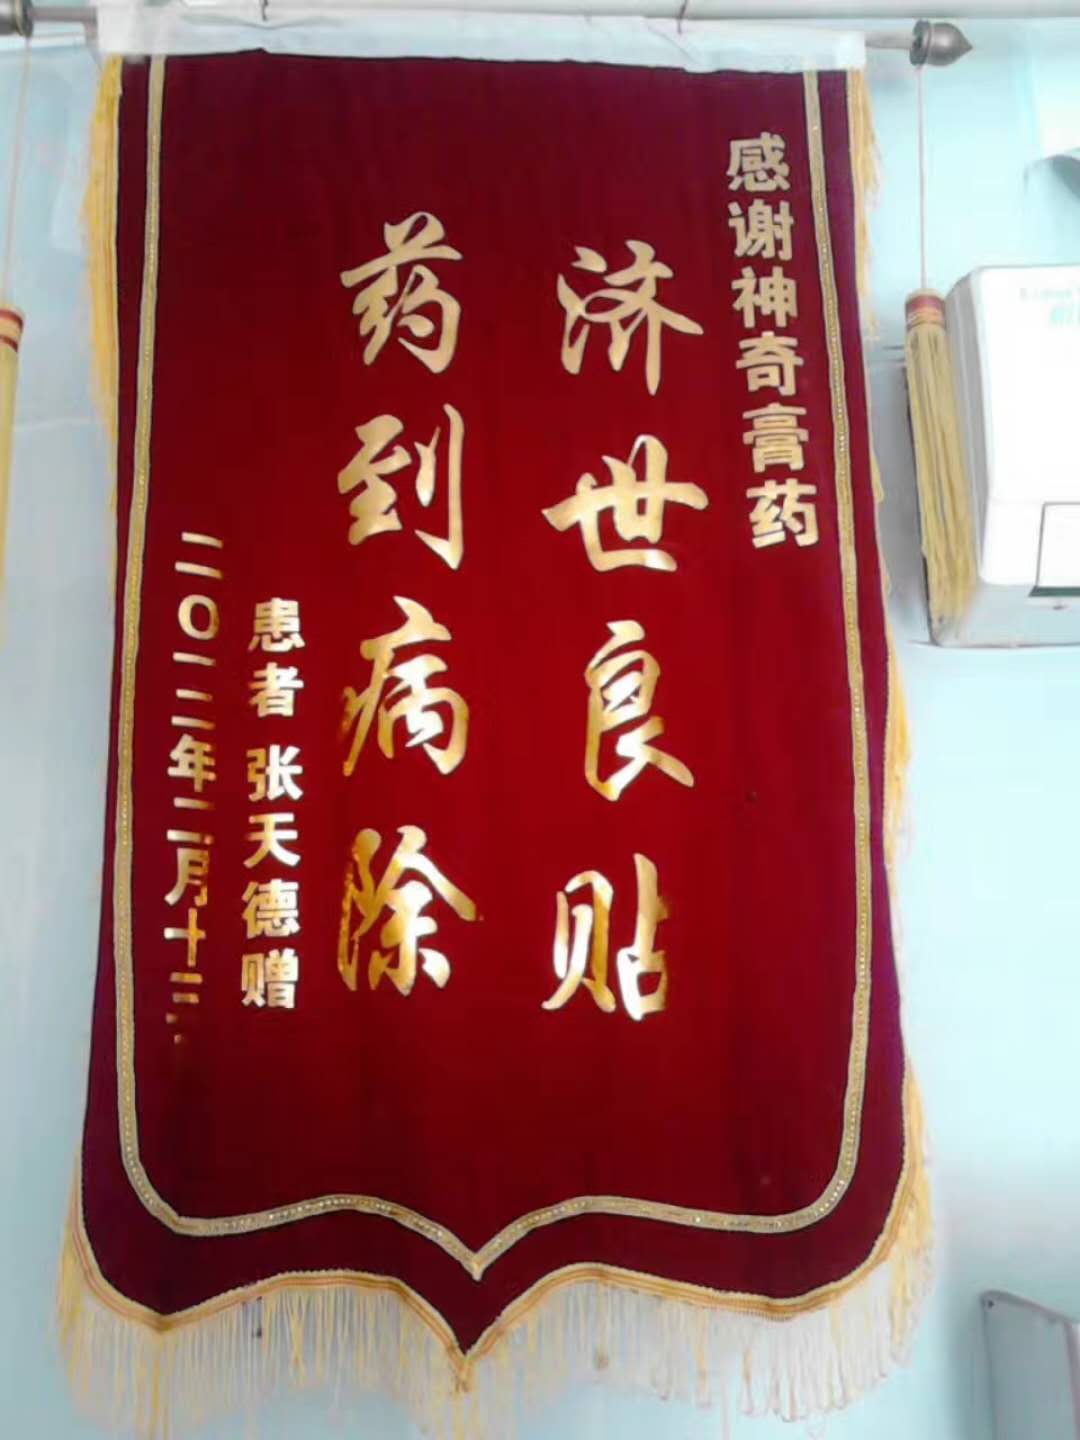 感谢神奇膏药
济世良贴
药到病除
患者 张天德赠
二〇一二年二月十三